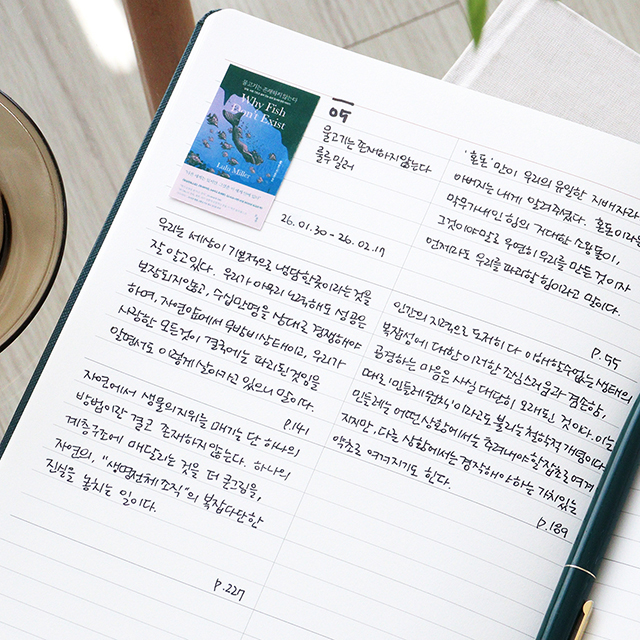 물고기는 존재하지 않는다
Why Fish
Don't Exist
Lulu Miller
09
물고기는 존재하지 않는다
룰루 밀러
26.01.30 - 26.02.17
우리는 세상이 기본적으로 냉담한 곳이라는 것을
잘 알고 있다. 우리가 아무리 노력해도 성공은
보장되지 않고, 수십만 명을 상대로 경쟁해야
하며, 자연 앞에서 무방비 상태이고, 우리가
사랑한 모든 것이 결국에는 파괴될 것임을
알면서도 이렇게 살아가고 있으니 말이다.
p.141
자연에서 생물의 지위를 매기는 단 하나의
방법이란 결코 존재하지 않는다. 하나의
계층구조에 매달리는 것은 더 큰 그림을,
자연의, "생명 전체 조직"의 복잡다단한
진실을 놓치는 일이다.
p.227
'혼돈'만이 우리의 유일한 지배자라고
아버지는 내게 알려주었다. 혼돈이라는
막무가내인 힘의 거대한 소용돌이,
그것이야말로 우연히 우리를 만든 것이자
언제라도 우리를 파괴할 힘이라고 말이다.
p.55
인간의 지력으로 도저히 다 이해할 수 없는 생태의
복잡성에 대한 이러한 조심스러움과 겸손함,
공경하는 마음은 사실 대단히 오래된 것이다. 이는
때로 '민들레 원칙'이라고도 불리는 철학적 개념이다.
민들레는 어떤 상황에서는 추려내야 할 잡초로 여겨
지지만, 다른 상황에서는 경작해야 하는 가치 있는
약초로 여겨지기도 한다.
p.189